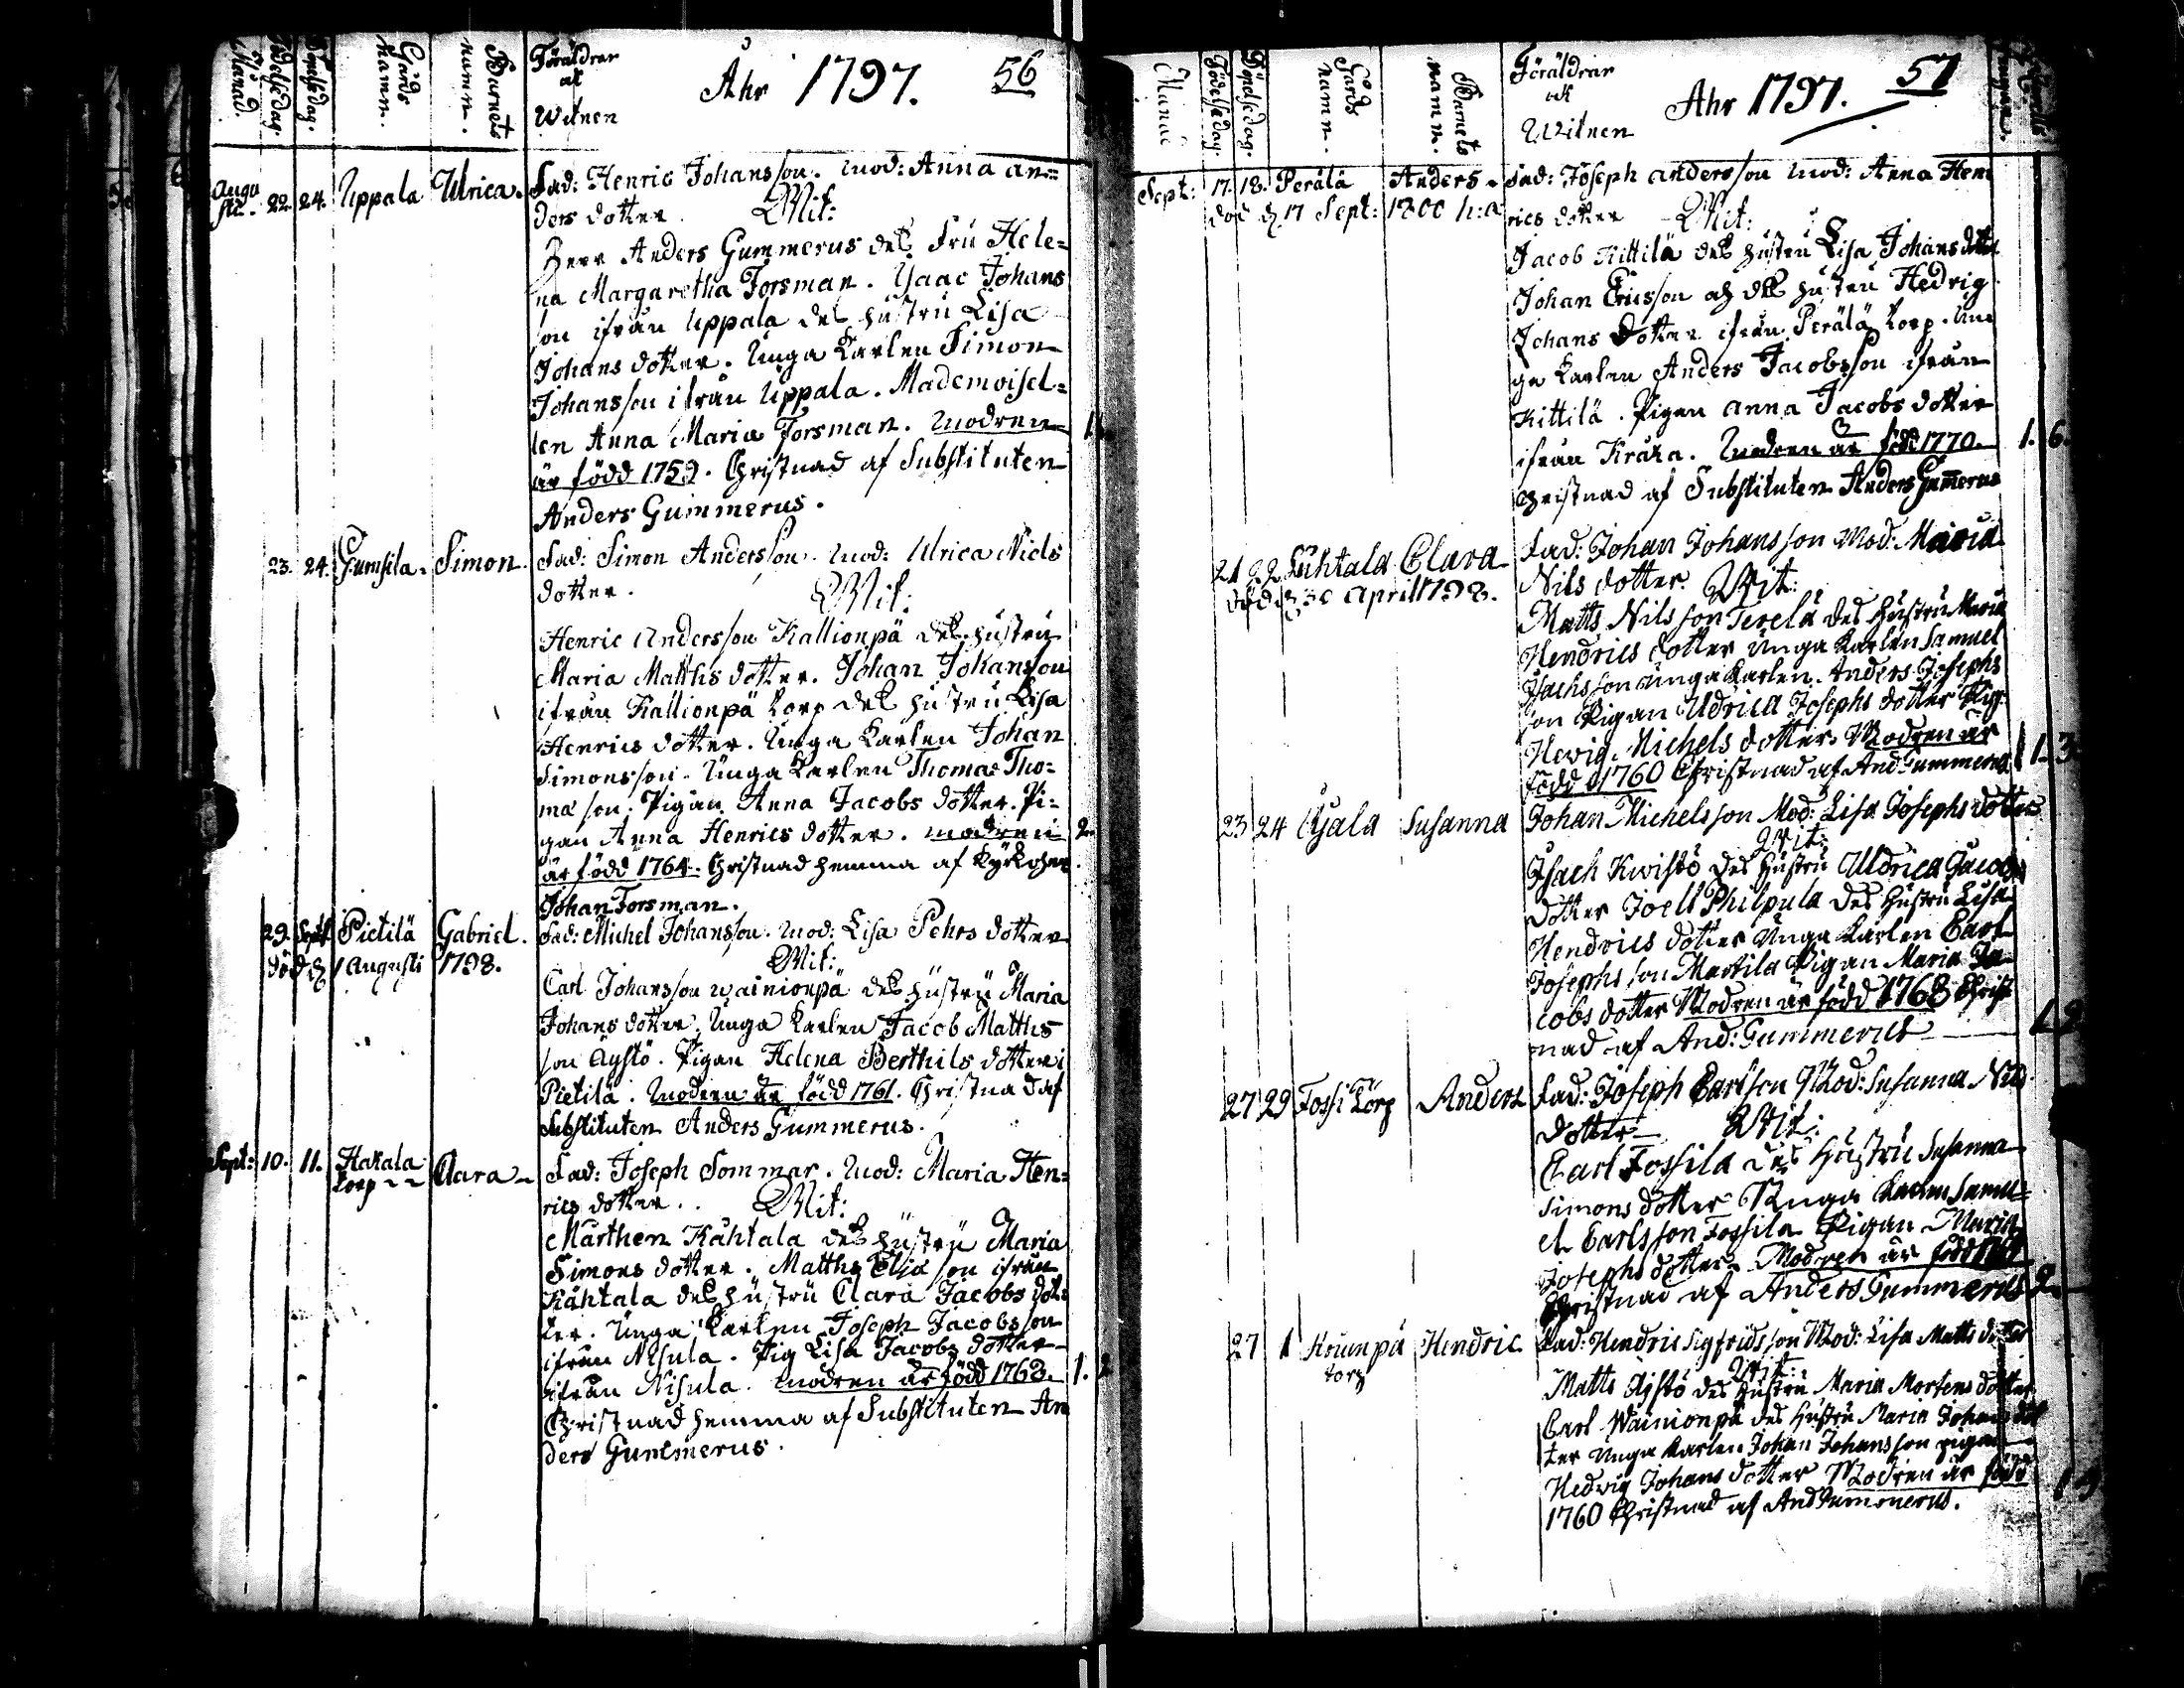 Månad.
Födelsedag.
Döpelsedag.
Gårds
namn.
Barnets
namn.
Föräldrar
ok
Witnen
Ahr 1797.
56
Augu
sti. 22. 24. Uppala Ulrica. Fad: Henric Johansson. Mod: Anna An=
ders dotter. Wit:
Herr Anders Gummerus des Fru Hele=
na Margaretha Forsman. Isaac Johans
son ifrån Uppala des hustru Lisa
Johans dotter. Unga Karlen Simon
Johansson ifrån Uppala. Mademoisel=
len Anna Maria Forsman. Modren
är född 1759. Christnad af Substituten
Anders Gummerus.
23. 24. Gumsila. Simon. Fad: Simon Andersson. Mod: Ulrica Niels
dotter. Wit:
Henric Andersson Kallionpä des hustru
Maria Matths dotter. Johan Johansson
ifrån Kallionpä torp des hustru Lisa
Henrics dotter. Unga Karlen Johan
Simonsson. Unga Karlen Thomas Tho=
mæ son. Pigan Anna Jacobs dotter. Pi=
gan Anna Henrics dotter. Modren 2
är född 1764. Christnad hemma af Kyrkoher
Johan Forsman.
29. Sept. Pietilä Gabriel. Fad: Michel Johansson. Mod: Lisa Pehrs dotter
död d 1 Augusti 1798. Wit:
Carl Johansson Wainionpä des hustru Maria
Johans dotter. Unga Karlen Jacob Matths
son Äystö. Pigan Helena Berthils dotter i
Pietilä. Modren är född 1761. Christnad af
Substituten Anders Gummerus.
Sept: 10. 11. Hakala Clara Fad: Joseph Sommar. Mod: Maria Hen=
torp rics dotter. Wit:
Marthen Kähtala des hustru Maria
Simons dotter. Matths Elia son ifrån
Kähtala des hustru Clara Jacobs dot=
ter. Unga Karlen Joseph Jacobsson
ifrån Nisula. Pig Lisa Jacobs dotter
ifrån Nisula. Modren är född 1763. 1.
Christnad hemma af Substituten An
ders Gummerus.
Månad
Födelsedag.
Döpelsedag.
Gårds
namn.
Barnets
namn.
Föräldrar
ok
Witnen
Ahr 1797.
57
Sept: 17. 18. Perälä Anders Fad: Joseph Andersson Mod: Anna Hen
död d 17 Sept: 1800 rics dotter Wit:
Jacob Kittilä des hustru Lisa Johans dotter
Johan Ericsson och des hustru Hedvig
Johans dotter ifrån Perälä torp. Un
ga Karlen Anders Jacobsson ifrån
Kittilä. Pigan Anna Jacobs dotter
ifrån Kraka. Modren är född 1770. 1. 6.
Christnad af Substituten Anders Gummerus
21 22 Luhtala Clara Fad: Johan Johansson Mod: Maria
död d 30 April 1798. Nils dotter. Wit:
Matts Nilsson Terelä des hustru Maria
Hendrics dotter Unga Karlen Samuel
Isachsson Unga Karlen Anders Josephs
son Pigan Uldrica Josephs dotter Pig:
Hevig Michels dotter Modren är
född 1760 Christnad af And Gummerus 1. 3
23 24 Ojala Susanna Johan Michelsson Mod: Lisa Josephs dotter
Wit:
Isach Kwistö des hustru Uldrica Jacobs
dotter Joell Philpula des hustru Lisa
Hendrics dotter Unga Karlen Carl
Josephsson Martila Pigan Maria Ja
cobs dotter Modren är född 1768 Christ
nad af And: Gummerus
27 29 Fossi torp Anders Fad: Joseph Carlsson Mod: Susanna Nils
dotter Wit:
Carl Fossila des hustru Susanna
Simons dotter Unga Karlen Samu=
el Carlsson Fossila Pigan Maria
Josephs dotter Modren är född
Christnad af Anders Gummerus 2
27 1 Krumpä Hendric Fad: Hendric Sigfridsson Mod: Lisa Matts dotter
torp Wit:
Matts Äjstö des hustru Maria Mortens dotter
Carl Wainionpä des hustru Maria Johans dot
ter Unga Karlen Johan Johansson pigan
Hedvig Johans dotter Modren är född
1760 Christnad af And Gummerus.